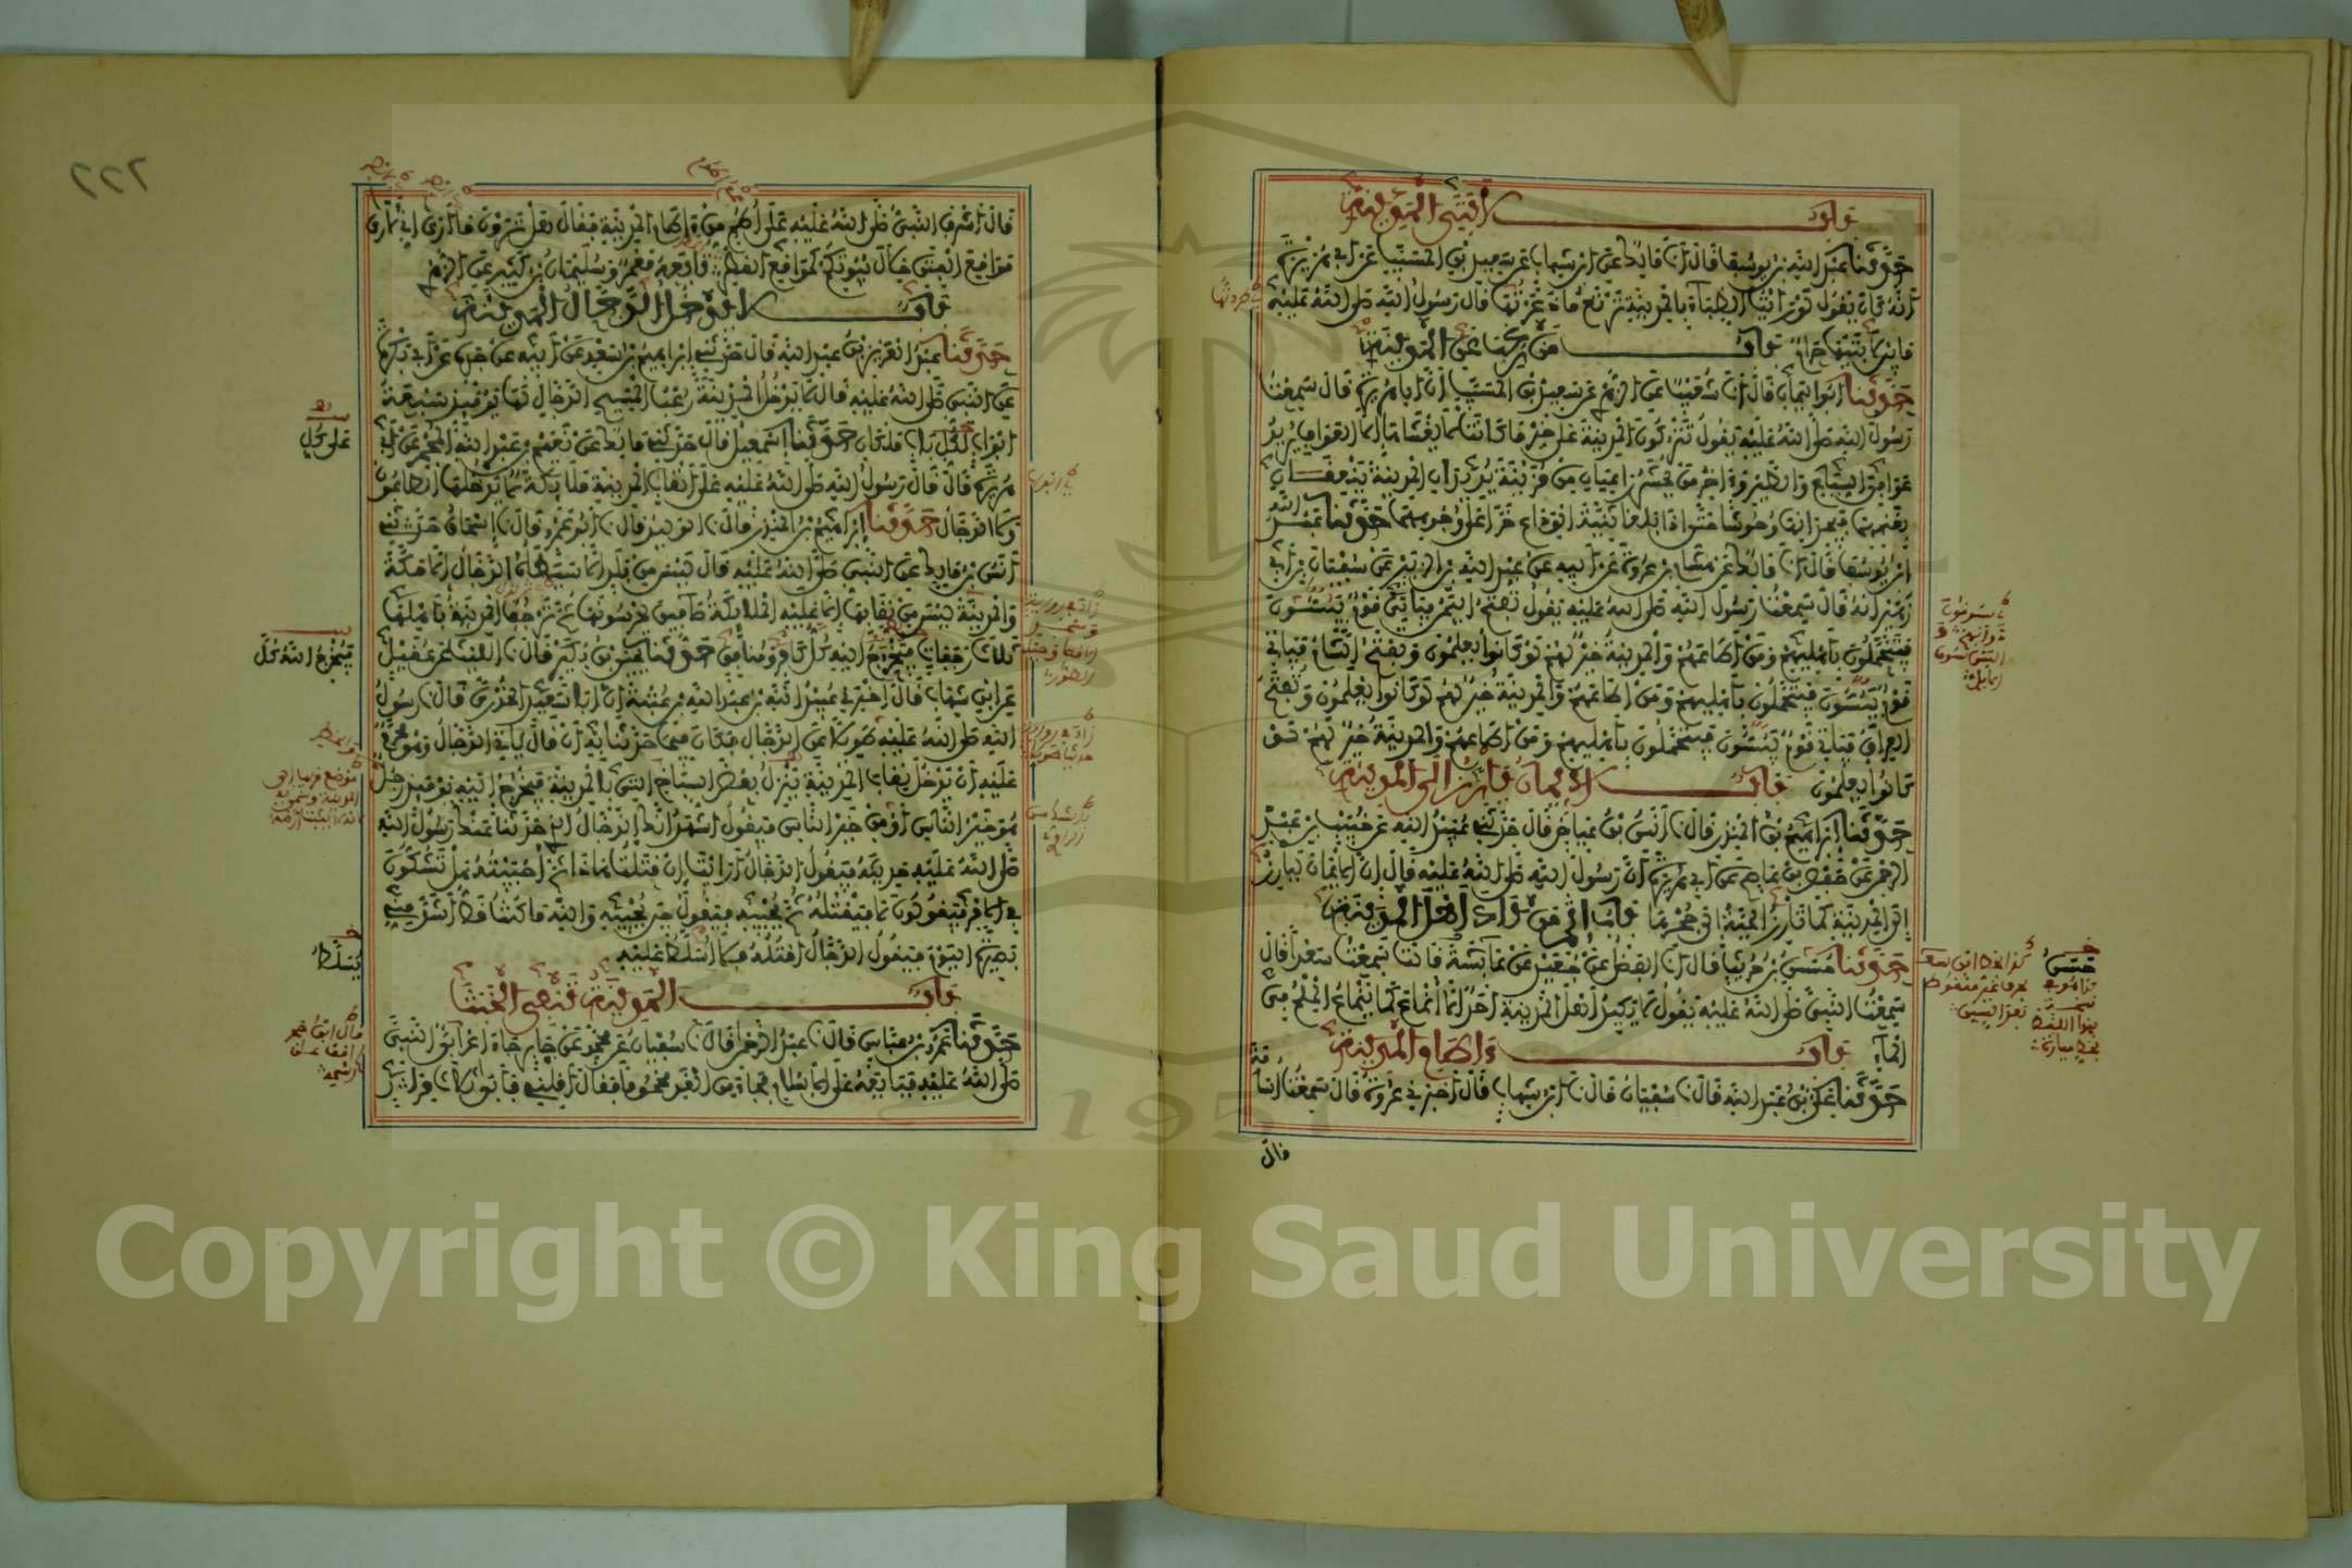 باب لابتي المدينة
حدثنا عبد الله بن يوسف قال انا مالك عن ابن شهاب عن سعيد بن المسيب عن ابي هريرة
انه كان يقول لو رايت الظباء بالمدينة ترتع ما ذعرتها قال رسول الله صلى الله عليه
ما بين لابتيها حرام باب من رغب عن المدينة
حدثنا ابو اليمان قال انا شعيب عن الزهري عن سعيد بن المسيب ان ابا هريرة قال سمعت
رسول الله صلى الله عليه يقول تتركون المدينة على خير ما كانت لا يغشاها الا العوافي يريد
عوافي السباع والطير واخر من يحشر راعيان من مزينة يريدان المدينة ينعقان
بغنمهما فيجدانها وحوشا حتى اذا بلغا ثنية الوداع خرا على وجوههما حدثنا عبد الله
ابن يوسف قال انا مالك عن هشام بن عروة عن ابيه عن عبد الله بن الزبير عن سفيان بن ابي
زهير انه قال سمعت رسول الله صلى الله عليه يقول تفتح اليمن فياتي قوم يبسون
فيتحملون باهليهم ومن اطاعهم والمدينة خير لهم لو كانوا يعلمون وتفتح الشام فياتي
قوم يبسون فيتحملون باهليهم ومن اطاعهم والمدينة خير لهم لو كانوا يعلمون وتفتح
العراق فياتي قوم يبسون فيتحملون باهليهم ومن اطاعهم والمدينة خير لهم لو
كانوا يعلمون باب الايمان يارز الى المدينة
حدثنا ابراهيم بن المنذر قال انا انس بن عياض قال حدثني عبيد الله عن خبيب بن عبد
الرحمن عن حفص بن عاصم عن ابي هريرة ان رسول الله صلى الله عليه قال ان الايمان ليارز
الى المدينة كما تارز الحية الى جحرها باب اثم من كاد اهل المدينة
حدثنا حسين بن حريث قال انا الفضل عن جعيد عن عائشة قالت سمعت سعدا قال
سمعت النبي صلى الله عليه يقول لا يكيد اهل المدينة احد الا انماع كما ينماع الملح في
الماء باب اطام المدينة
حدثنا علي بن عبد الله قال انا سفيان قال انا ابن شهاب قال اخبرني عروة قال سمعت اسامة
قال
٢٢٢
قال اشرف النبي صلى الله عليه على اطم من اطام المدينة فقال هل ترون ما ارى اني لارى
مواقع الفتن خلال بيوتكم كمواقع القطر تابعه معمر وسليمان بن كثير عن الزهري
باب لا يدخل الدجال المدينة
حدثنا عبد العزيز بن عبد الله قال حدثني ابراهيم بن سعد عن ابيه عن جده عن ابي بكرة
عن النبي صلى الله عليه قال لا يدخل المدينة رعب المسيح الدجال لها يومئذ سبعة
ابواب لكل باب ملكان حدثنا اسمعيل قال حدثني مالك عن نعيم بن عبد الله المجمر عن ابي
هريرة قال قال رسول الله صلى الله عليه على انقاب المدينة ملائكة لا يدخلها الطاعون
ولا الدجال حدثنا ابراهيم بن المنذر قال انا الوليد قال انا ابو عمرو قال انا اسحاق حدثني
انس بن مالك عن النبي صلى الله عليه قال ليس من بلد الا سيطؤه الدجال الا مكة
والمدينة ليس من نقابها الا عليه الملائكة صافين يحرسونها ثم ترجف المدينة باهلها
ثلاث رجفات فيخرج اليه كل كافر ومنافق حدثنا يحيى بن بكير قال انا الليث عن عقيل
عن ابن شهاب قال اخبرني عبيد الله بن عبد الله بن عتبة ان ابا سعيد الخدري قال انا رسول
الله صلى الله عليه طويلا عن الدجال فكان فيما حدثنا به ان قال ياتي الدجال وهو محرم
عليه ان يدخل نقاب المدينة ينزل بعض السباخ التي بالمدينة فيخرج اليه يومئذ رجل
هو خير الناس او من خير الناس فيقول اشهد انك الدجال الذي حدثنا عنك رسول الله
صلى الله عليه حديثه فيقول الدجال ارايت ان قتلت هذا ثم احييته هل تشكون
في الامر فيقولون لا فيقتله ثم يحييه فيقول حين يحييه والله ما كنت قط اشد مني
بصيرة اليوم فيقول الدجال اقتله فلا اسلط عليه
باب المدينة تنفي الخبث
حدثنا عمرو بن عباس قال انا عبد الرحمن قال انا سفيان عن محمد عن جابر جاء اعرابي النبي
صلى الله عليه فبايعه على الاسلام فجاء من الغد محموما فقال اقلني فابى ثلاث مرار
على كل
فيخرج الله كل
يسلط
Copyright © King Saud University
1957